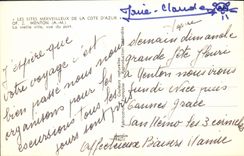 LES SITES MERVEILLEUX DE LA COTE D'AZUR
MENTON (A.-M.)
La vieille ville, vue du port
Marie-Claude
J'espère que
votre voyage c'est
bien passé nous nous
organisons pour les
excursions tous les
jours
demain dimanche
grande fête fleurie
a Menton nous irons
Nice puis
Cannes Grasse
San Remo les 3 corniches
affectueux Baisers